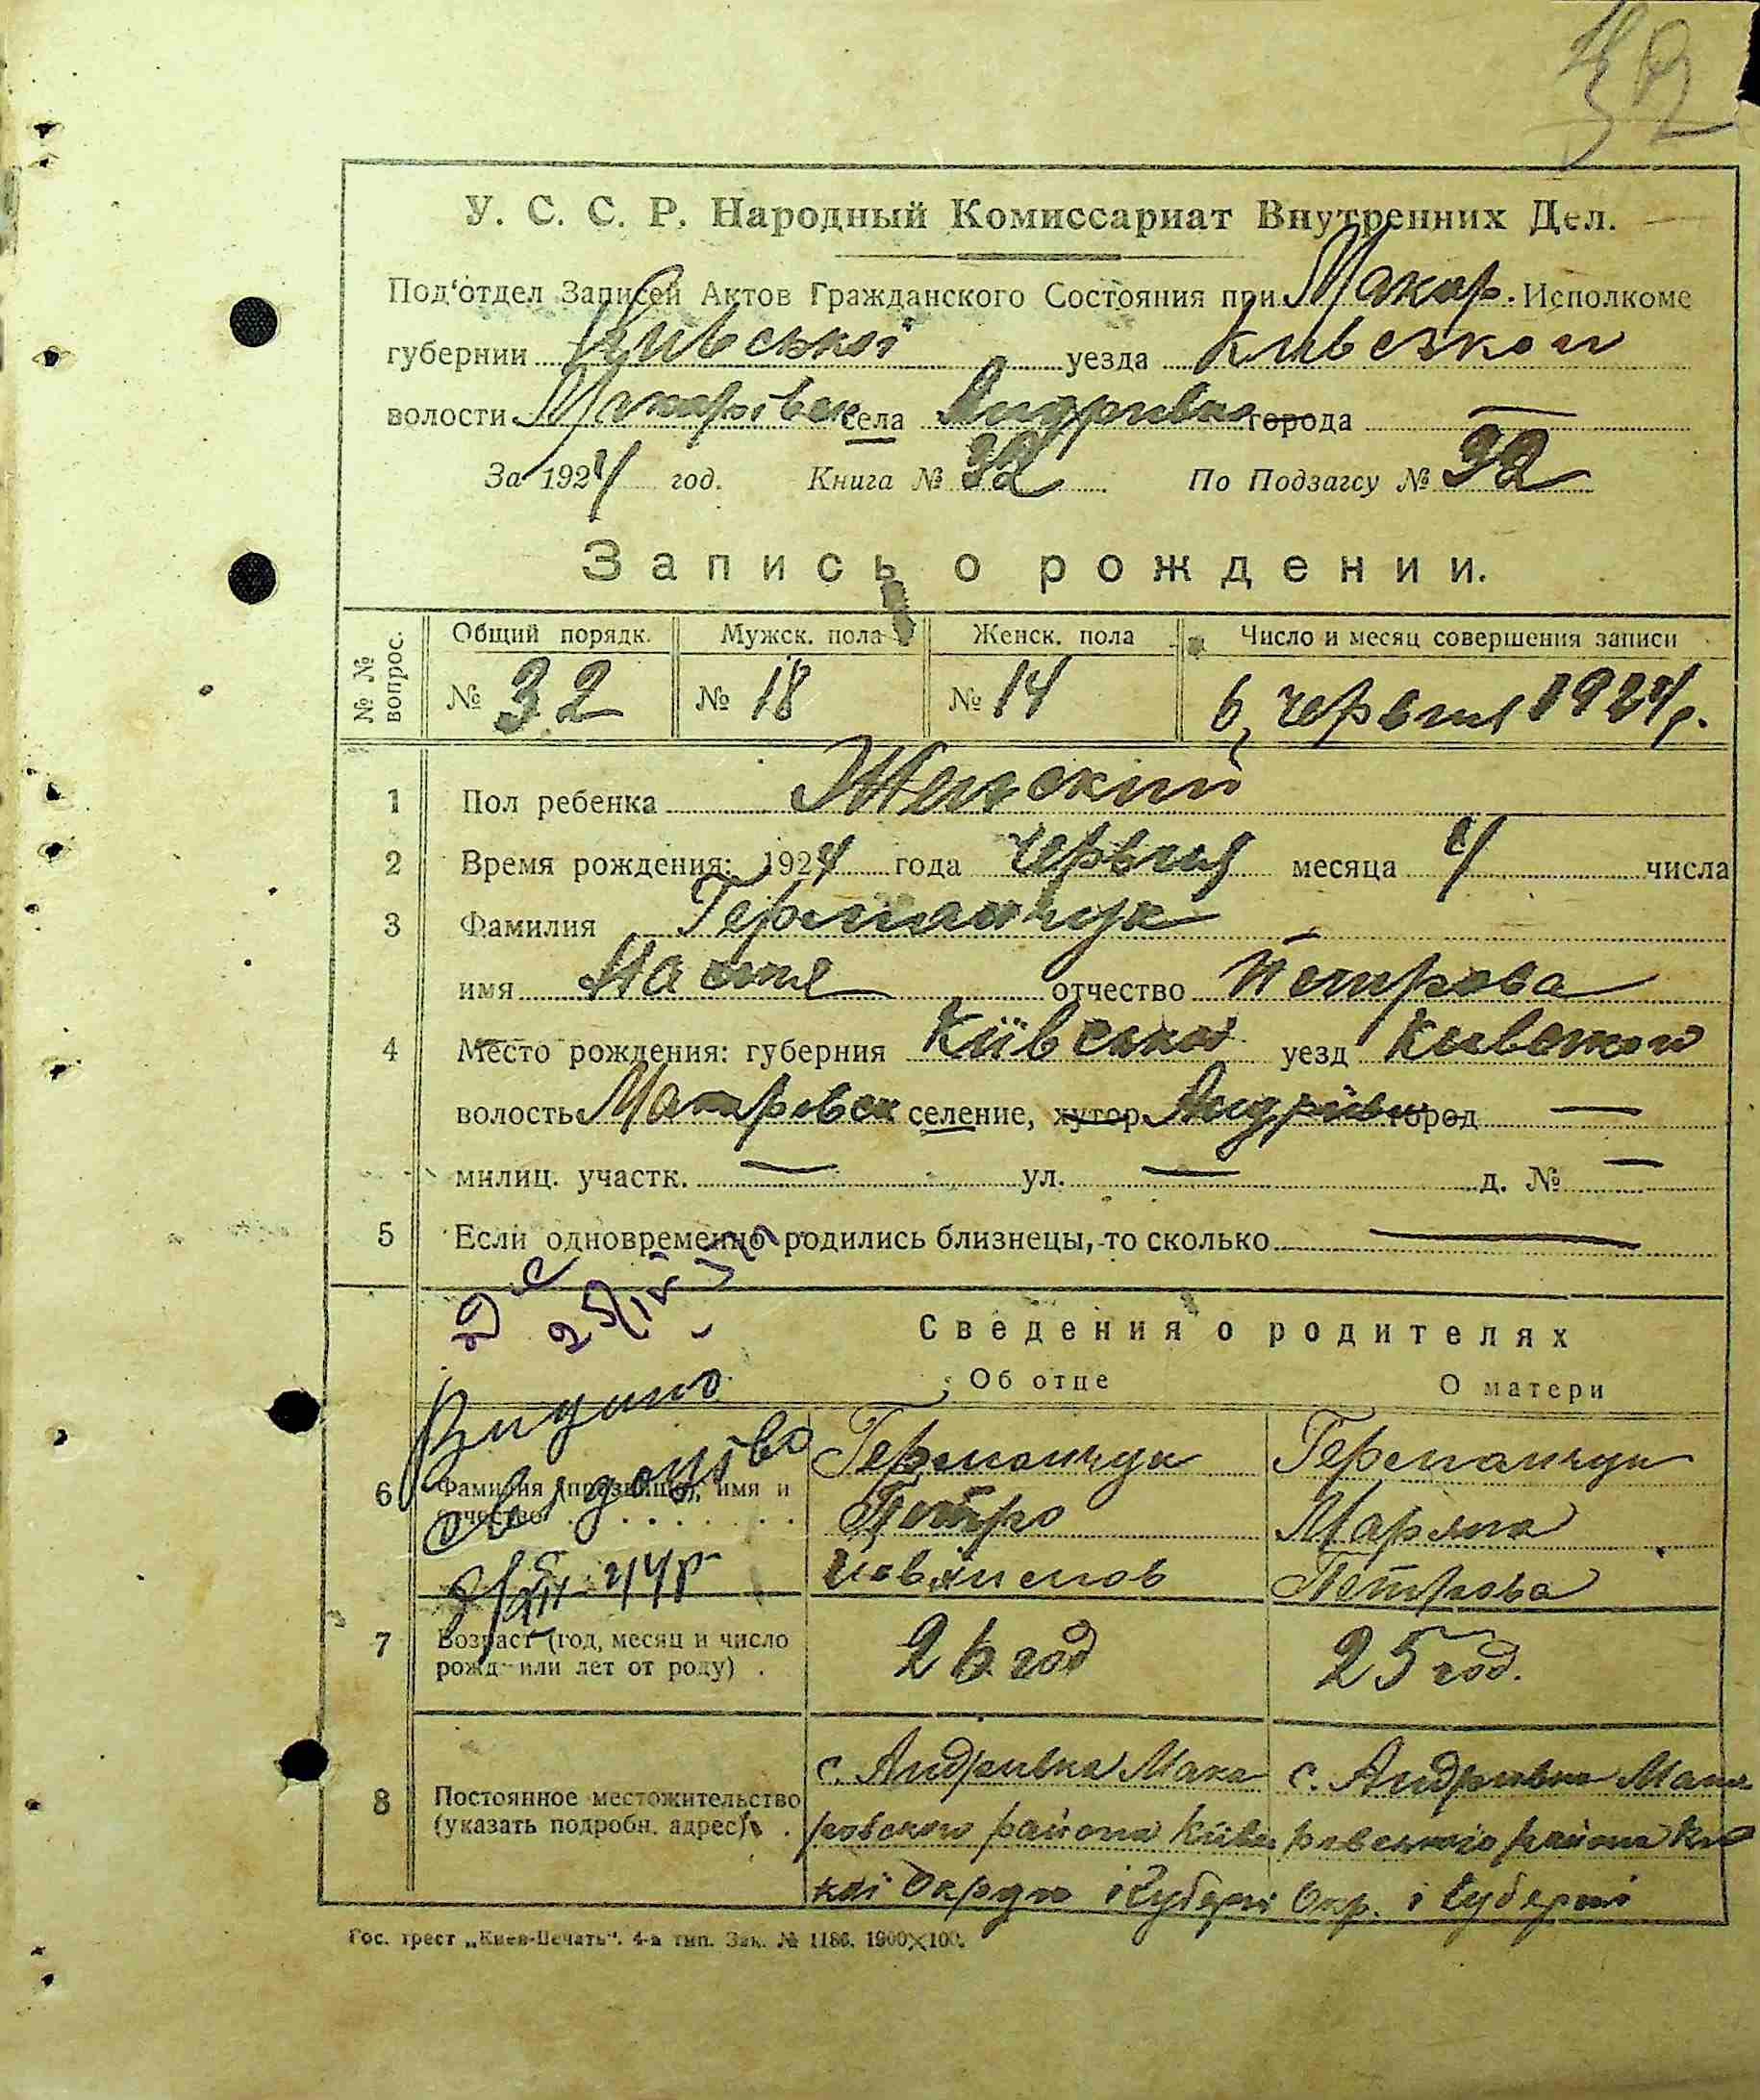 32
У. С. С. Р. Народный Комиссариат Внутренних Дел.
Под‘отдел Записей Актов Гражданского Состояния при Макар. Исполкоме
губернии Київської уезда Київської
волости Макарівск села Андривка города —
За 1924 год. Книга № 32 По Подзагсу № 32
Запись о рождении.
№ № вопрос. Общий порядк. Мужск. пола Женск. пола Число и месяц совершения записи
№ 32 № 18 № 14 6, червня 1924 р.
1 Пол ребенка Женский
2 Время рождения: 1924 года червня месяца 4 числа
3 Фамилия Германчук
имя Настя отчество Петрова
4 Место рождения: губерния Київська уезд
волость селение, хутор Андрівка город —
милиц. участк. — ул. — д. № —
5 Если одновременно родились близнецы, то сколько —
Сведения о родителях
Об отце О матери
Видано
свидоцтво
6 Фамилия (прозвище), имя и отчество
Германчук Германчук
Петро Марьяна
Петрова
44р
7 Возраст (год, месяц и число рожд. или лет от роду) .
26 год 25 год.
8 Постоянное местожительство (указать подробн. адрес) .
с. Андривка Мака с. Андривка Мака
ровского района Київ ровського района Ки
кої Округи і Губерні Окр. і Губерні
Гос. трест „Киев-Печать“. 4-а тип. Зак. № 1186. 1900×100.